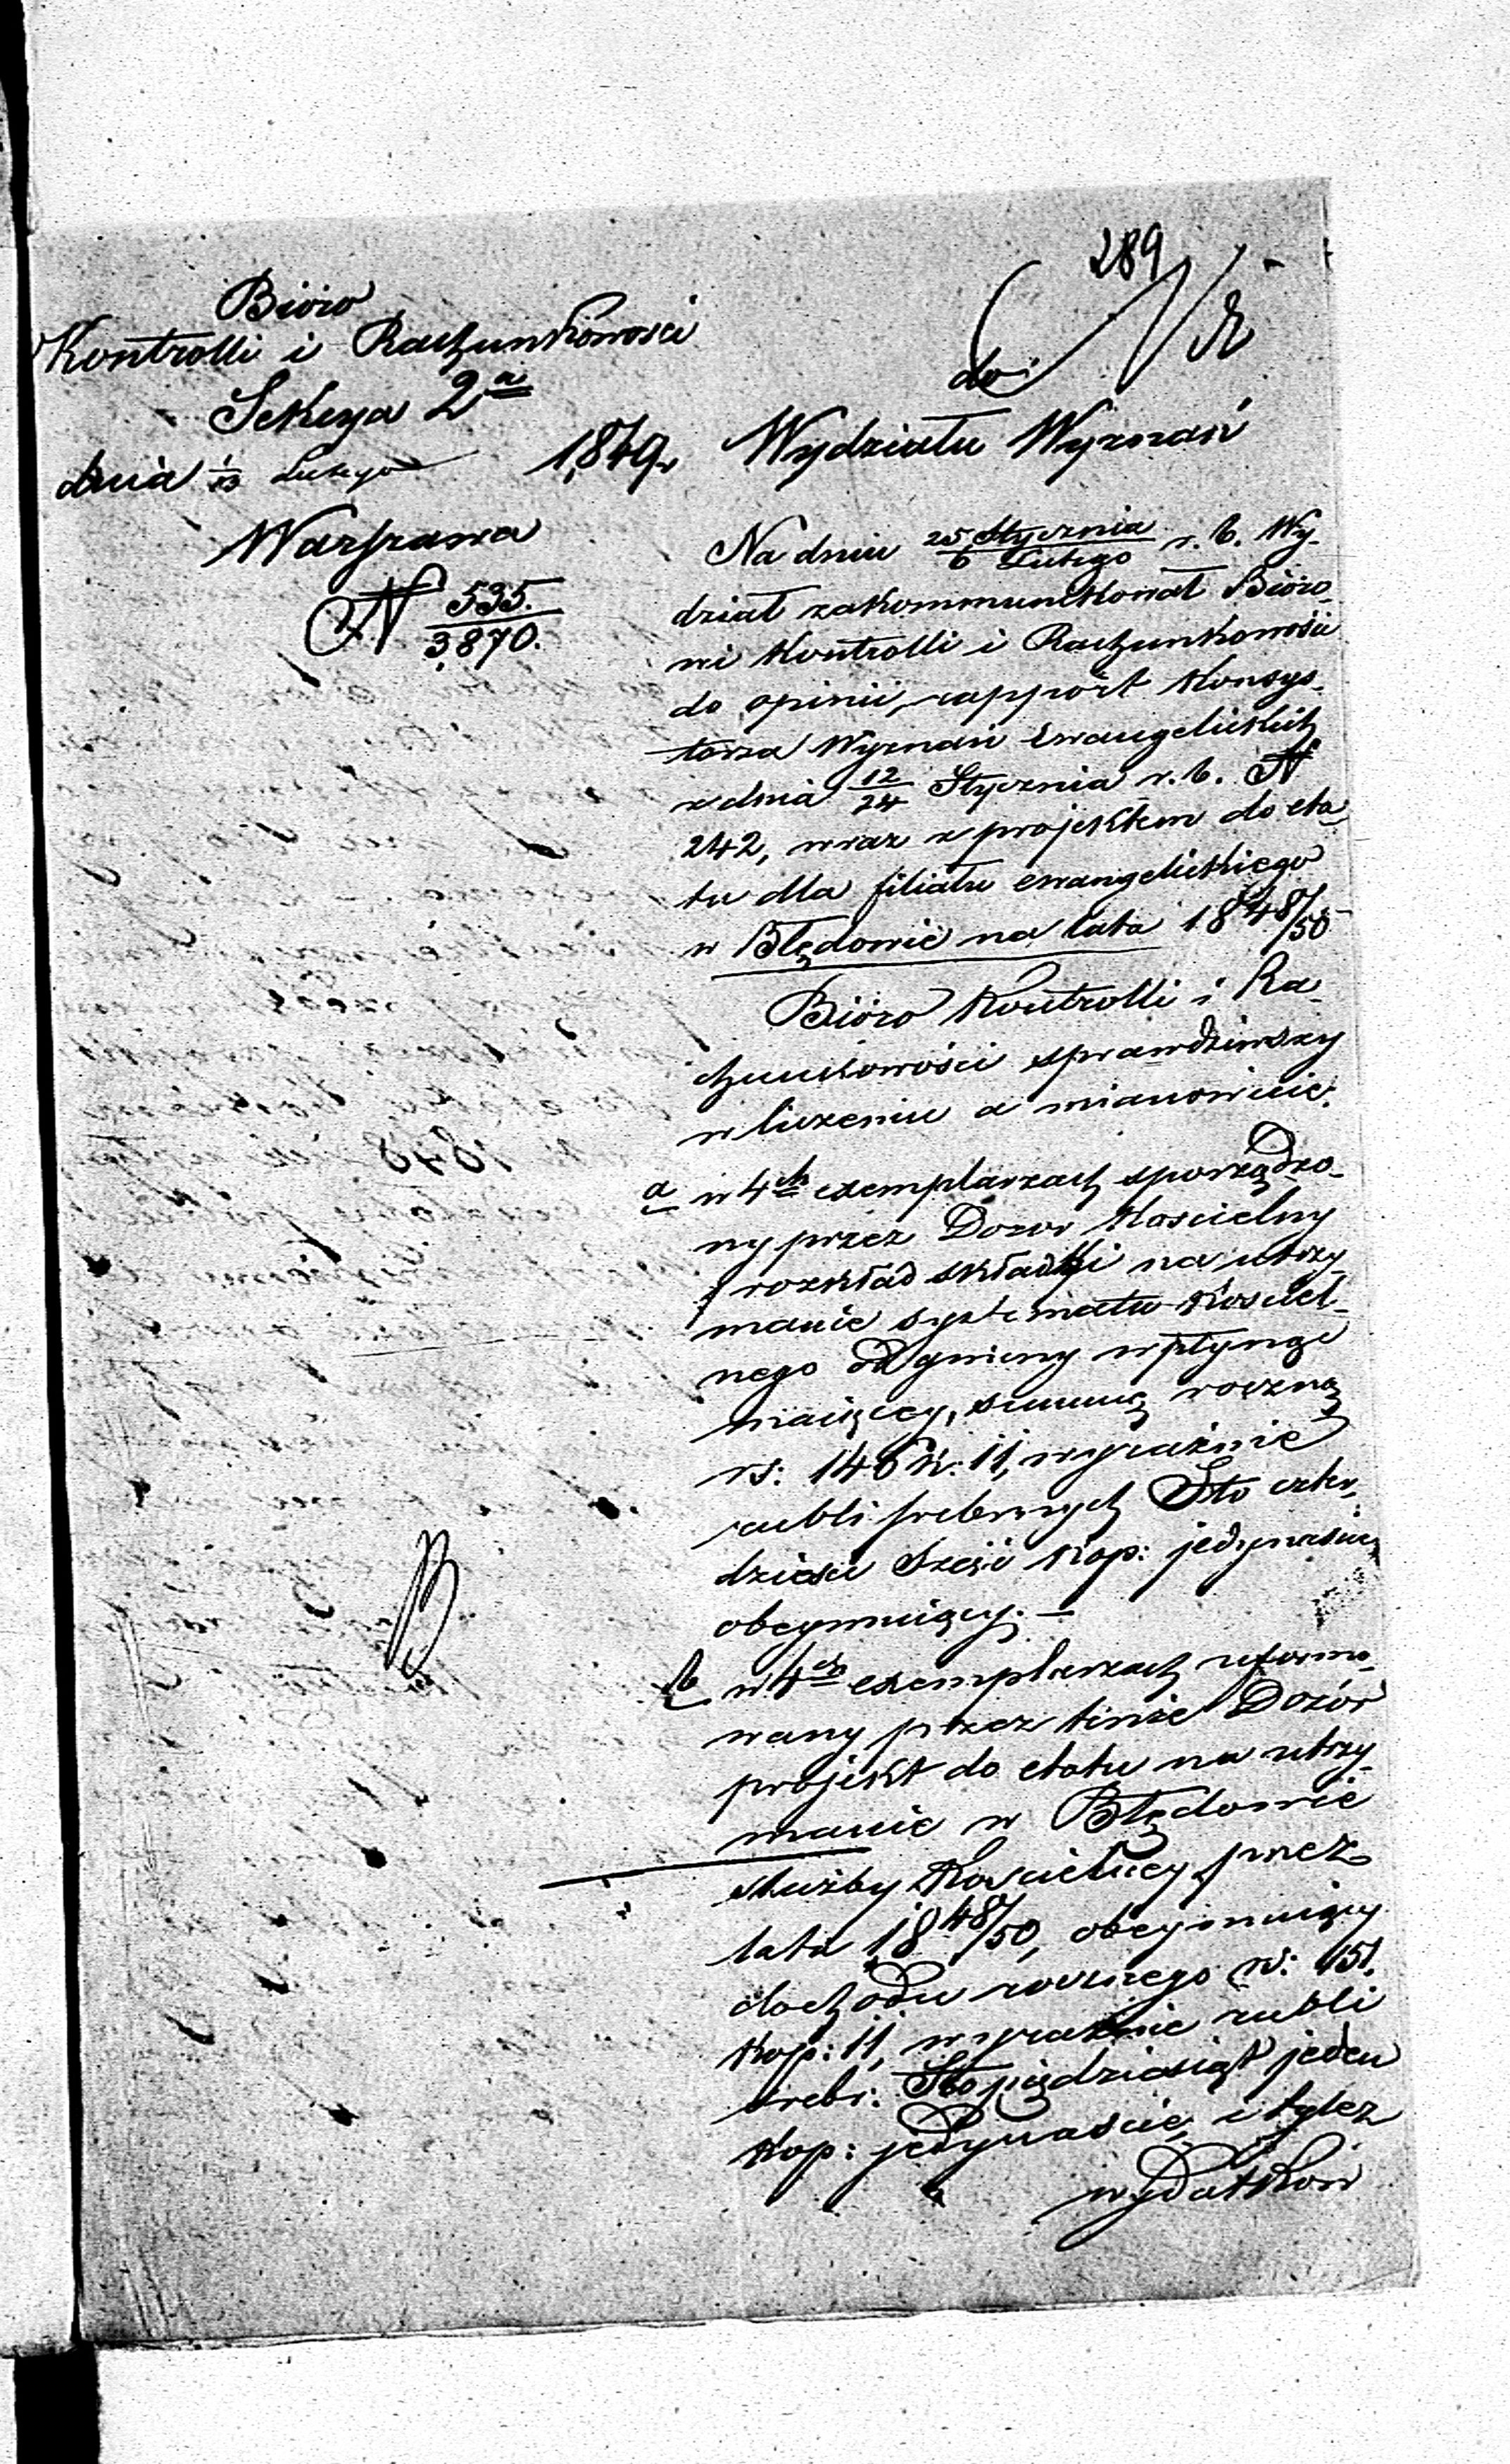 289
Bióro
Kontrolli i Rachunkowości
Sekcya 2a
dnia 1/13 Lutego 1849r
Warszawa
N 535./3870.
do
Wydziału Wyznań
Na dniu 25 Stycznia/6 Lutego r. b. Wy-
dział zakommunikował Bióro-
wi Kontrolli i Rachunkowości
do opinii, rapport Konsys-
torza Wyznań Ewangelickich
z dnia 12/24 Stycznia r. b. N
242, wraz z projektem do eta-
tu dla filiału ewangelickiego
w Błędowie na lata 1848/50
Bióro Kontrolli i Ra-
chunkowości sprawdziwszy
w liczeniu a mianowicie:
a w 4ch exemplarzach sporządzo-
ny przez Dozor Kościelny
rozkład składki na utrzy-
manie systematu Kościel-
nego od gminy wpłynąć
maiący, summę roczną
rs: 146 k: 11, wyraźnie
rubli srebrnych Sto czter-
dzieści sześć kop: jedynaście
obeymuiący. —
b w 4ch exemplarzach uformo-
wany przez tenże Dozór
projekt do etatu na utrzy-
manie w Błędowie
służby Kościelney przez
lata 1848/50, obeymuiący
dochodu rocznego rs: 151.
kop: 11, wyraźnie rubli
srebr: Sto pięćdziesiąt jeden
kop: jedynaście, i tylez
wydatków